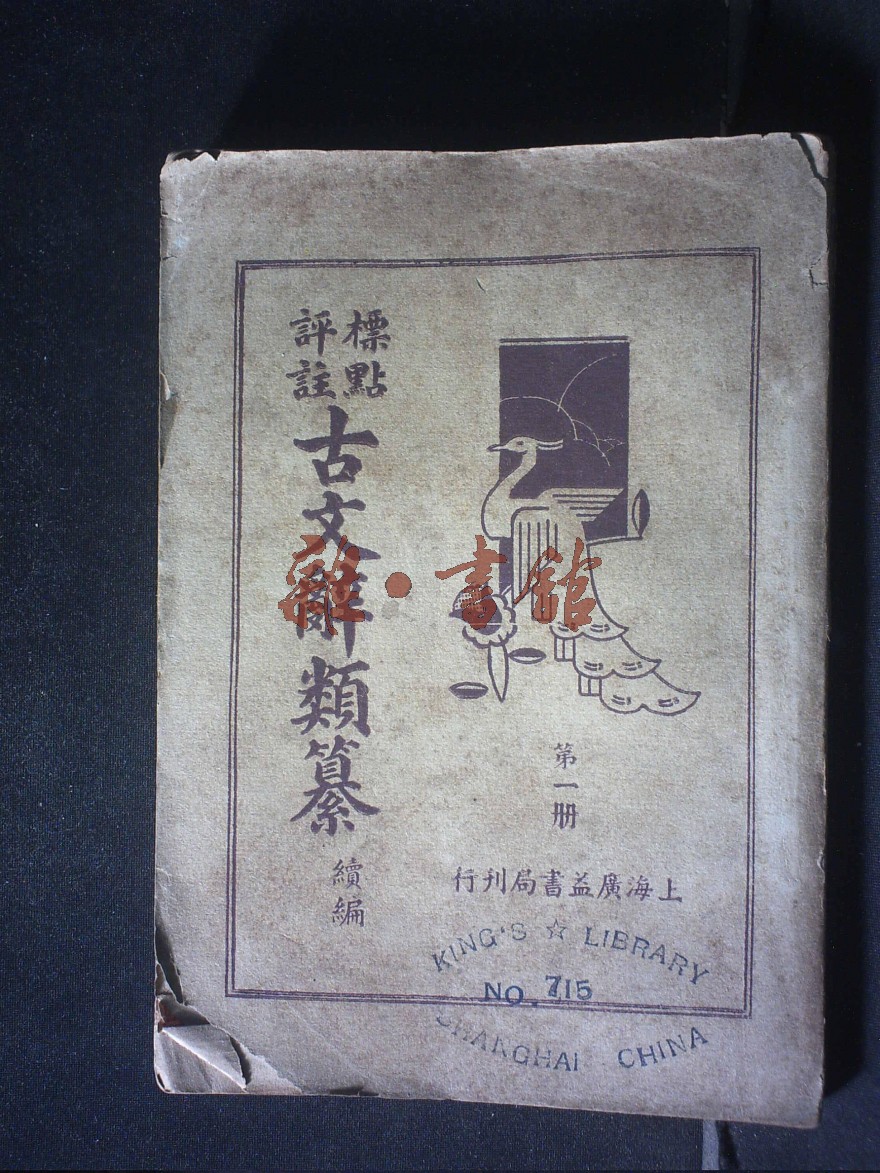 標點
評註
古文辭類纂
續編
第一册
上海廣益書局刊行
KING'S ☆ LIBRARY
NO. 715
SHANGHAI CHINA
雜·書館